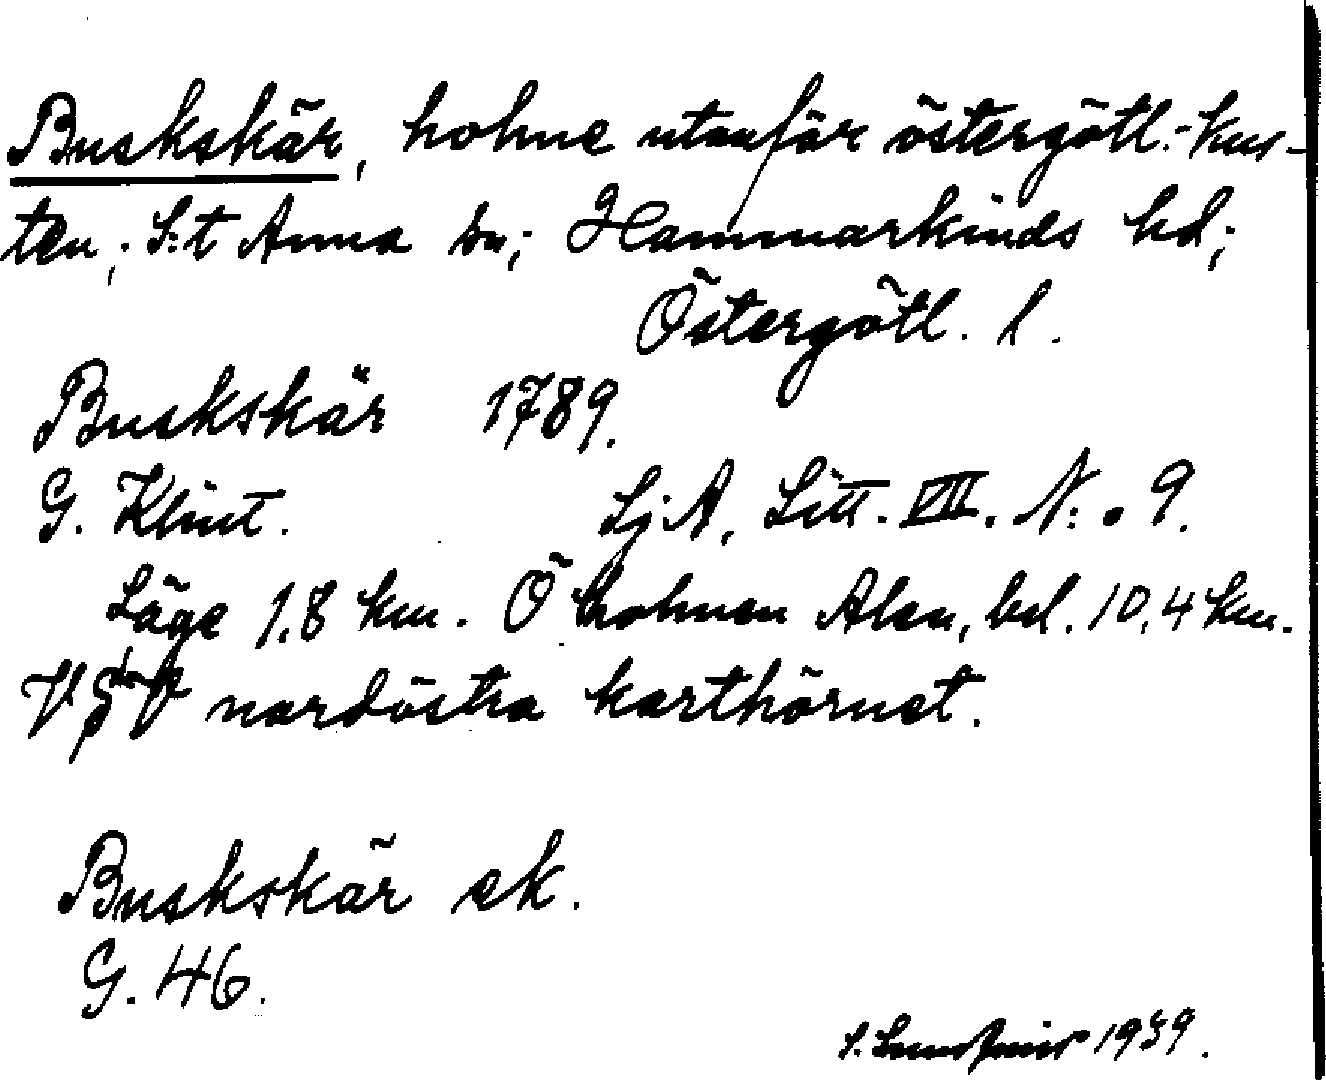 Buskskär, holme utanför östergötl.-kus-
ten; S:t Anna sn; Hammarkinds hd;
Östergötl. l.
Buskskär 1789.
G. Klint. SjA, Litt. VIII. N:o 9.
Läge 1.8 km. Ö holmen Alen, bel. 10,4 km.
nordöstra karthörnet.
Buskskär ek.
G. 46.
1939.